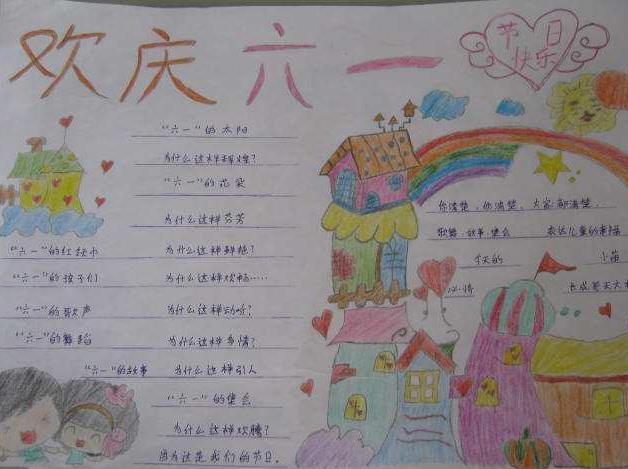 欢庆六一
节日
快乐
“六一”的太阳
为什么这样辉煌?
“六一”的花朵
为什么这样芬芳
“六一”的红领巾 为什么这样鲜艳?
“六一”的孩子们 为什么这样欢畅……
“六一”的歌声 为什么这样动听?
“六一”的舞蹈 为什么这样多情?
“六一”的故事 为什么这样引人
“六一”的集会
为什么这样欢腾?
因为这是我们的节日。
你清楚、他清楚、大家都清楚。
歌舞、故事、集会 表达儿童的幸福
今天的 小苗
心情 长成参天大